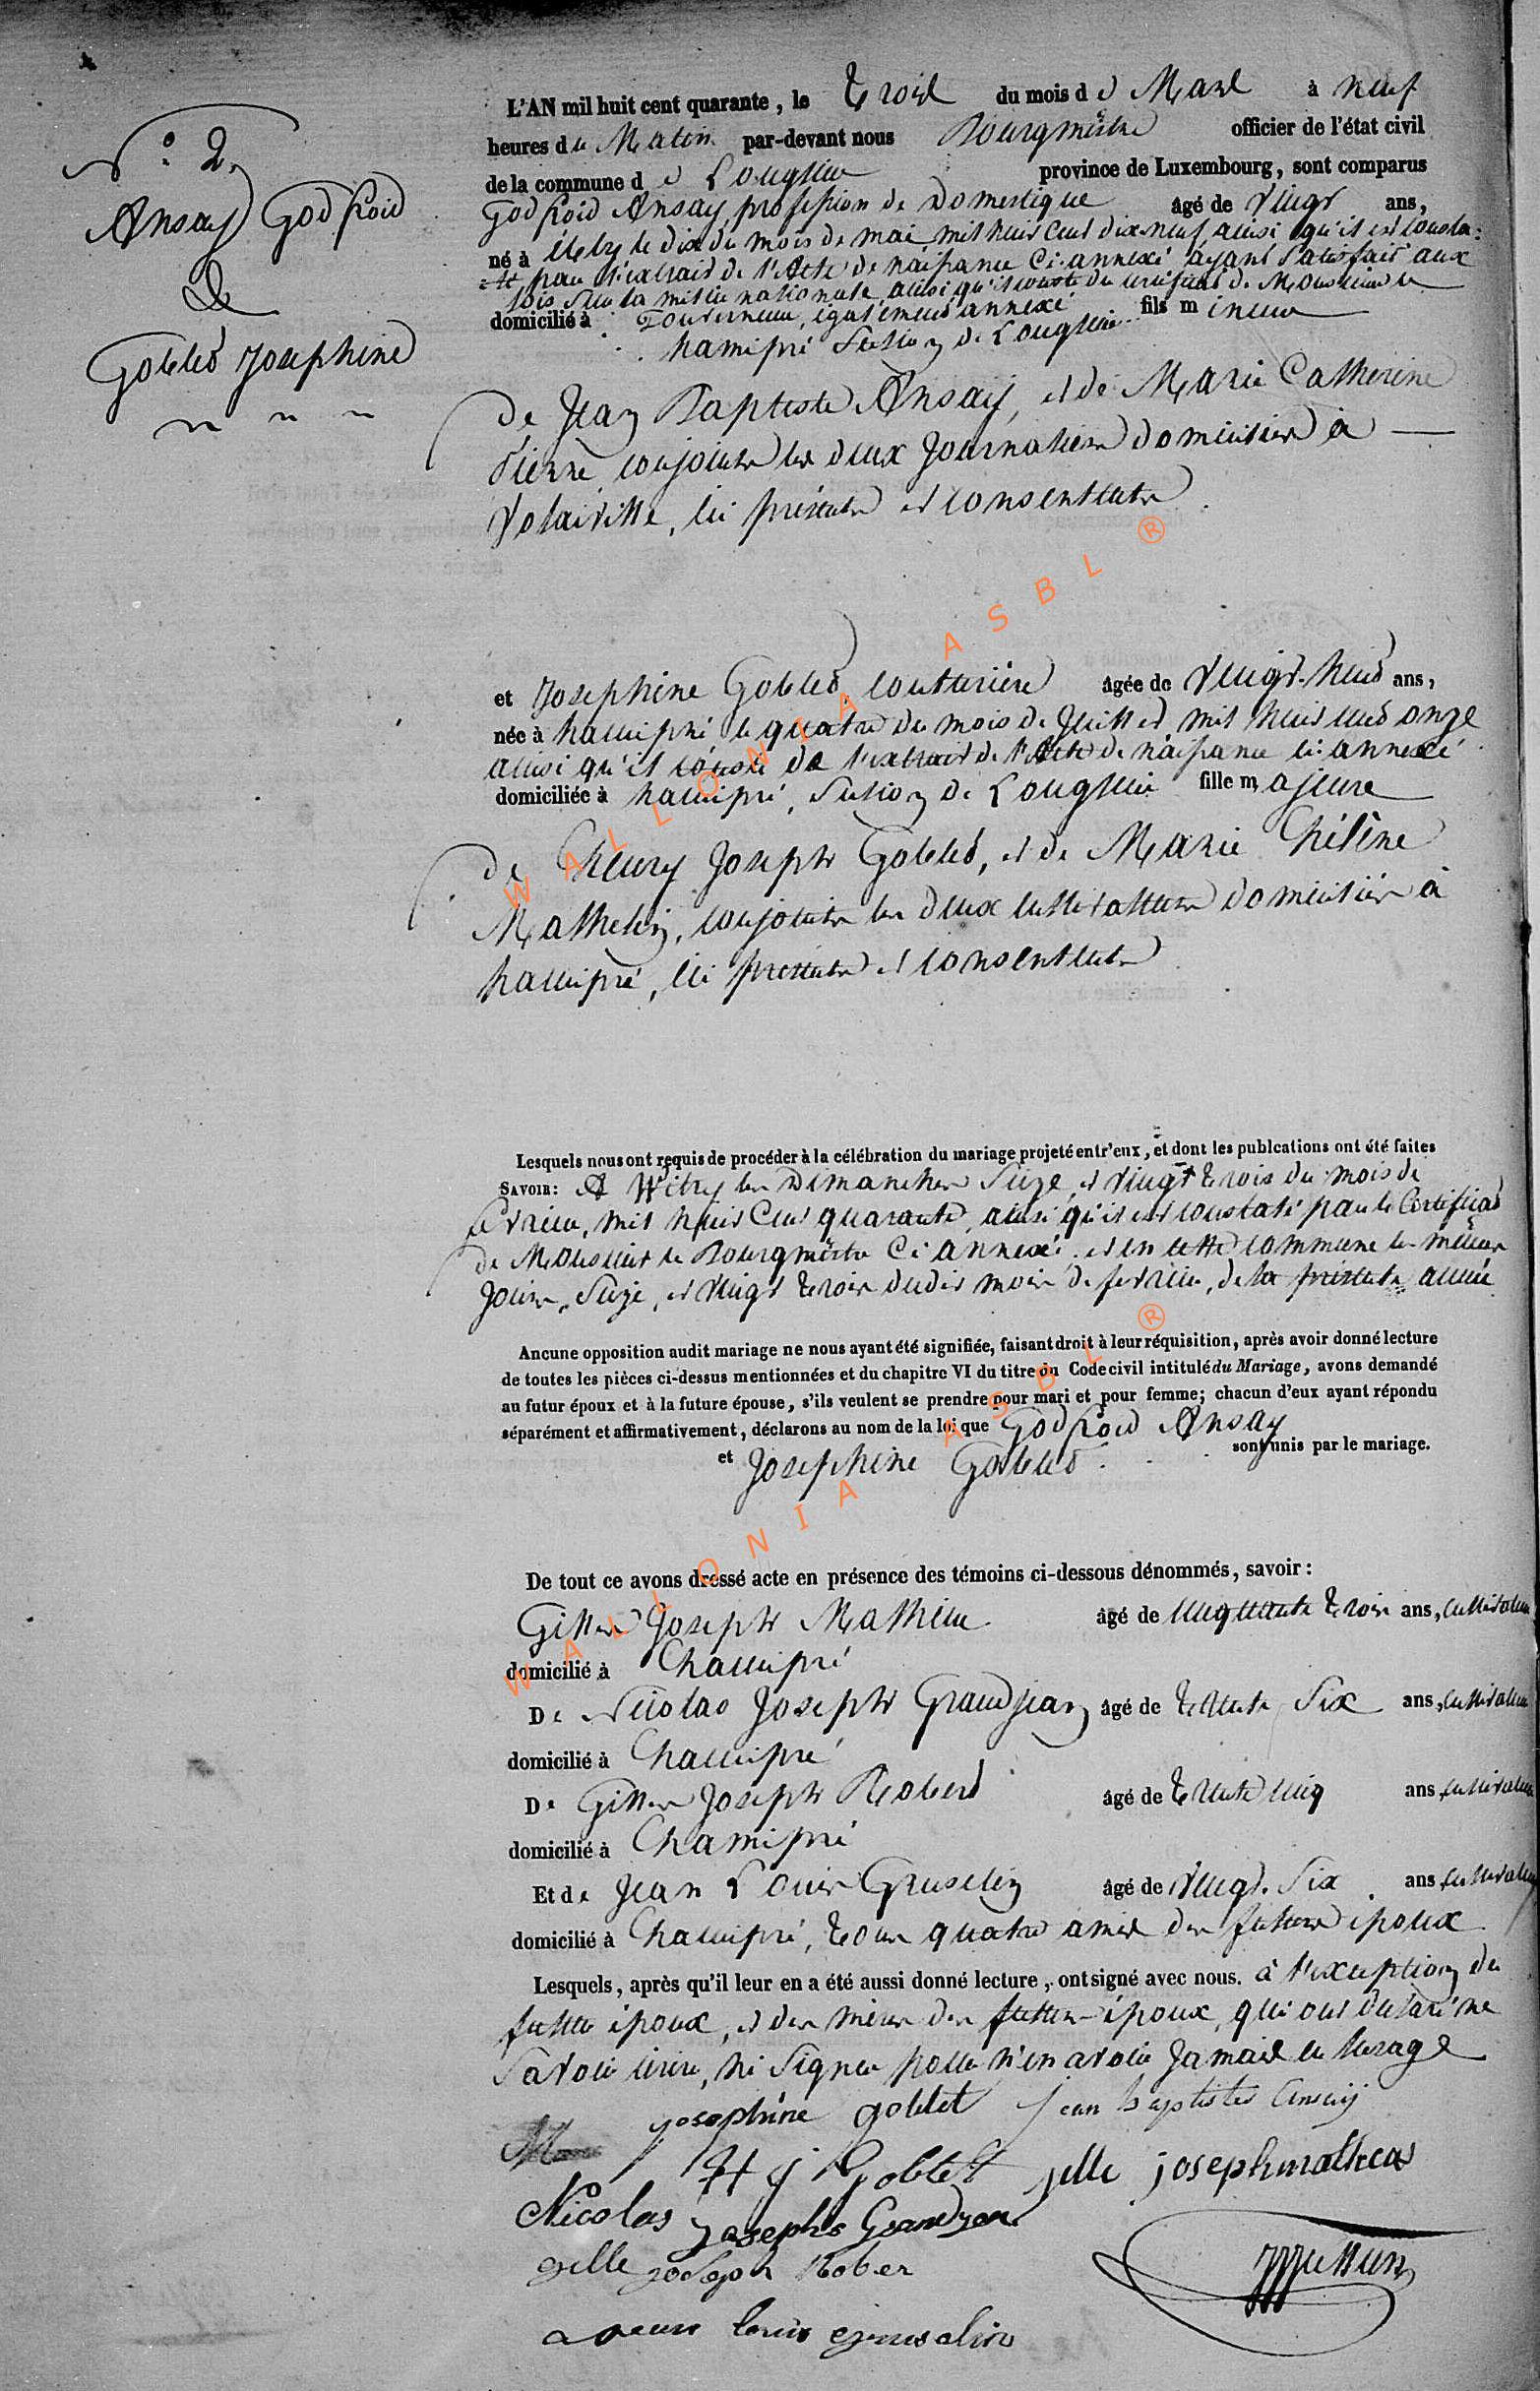 N.° 2,
Ansay Godfroid
&
Goblet Josephine
L'AN mil huit cent quarante, le Trois du mois de Mars à neuf
heures du Matin par-devant nous Bourgmestre officier de l'état civil
de la commune de Longlier province de Luxembourg, sont comparus
Godfroid Ansay, profession de Domestique âgé de vingt ans,
né à Witry le dix du mois de mai mil huit cent dix-neuf ainsi qu'il est consta-
-té par l'extrait de l'Acte de naissance ci-annexé ayant satisfait aux
lois sur la milice nationale, ainsi qu'il conste du certificat de Monsieur le
domicilié à Gouverneur, également annexé fils mineur
hamipré Section de Longlier
De Jean Baptiste Ansay, et de Marie Catherine
Pierre, conjoints les deux Journaliers domiciliés à
Volaiville, ici présents et consentents
et Josephine Goblet, couturière âgée de vingt-huit ans,
née à hamipré le quatre du mois de Juillet mil huit cent onze
ainsi qu'il conste de l'extrait de l'Acte de naissance ci-annexé
domiciliée à hamipré, Section de Longlier fille majeure
de Henry Joseph Goblet, et de Marie Hélène
Mathelin, conjoints les deux cultivateurs domiciliés à
hamipré, ici présents et consentents
Lesquels nous ont requis de procéder à la célébration du mariage projeté entr'eux, et dont les publcations ont été faites
SAVOIR: A Witry les Dimanches Seize, et vingt trois du mois de
fevrier, mil huit Cent quarante, ainsi qu'il est constaté par le Certificat
de Monsieur le Bourgmestre Ci annexé. et en cette commune les mêmes
Jours, Seize, et vingt trois dudit mois de fevrier, de la présente année
Aucune opposition audit mariage ne nous ayant été signifiée, faisant droit à leur réquisition, après avoir donné lecture
de toutes les pièces ci-dessus mentionnées et du chapitre VI du titre du Code civil intitulé du Mariage, avons demandé
au futur époux et à la future épouse, s'ils veulent se prendre pour mari et pour femme; chacun d'eux ayant répondu
séparément et affirmativement, déclarons au nom de la loi que Godfroid Ansay
et Josephine Goblet sont unis par le mariage.
De tout ce avons dressé acte en présence des témoins ci-dessous dénommés, savoir:
Gilles Joseph Mathieu âgé de cinquante trois ans, cultivateur
domicilié à hamipré
De Nicolas Joseph Grandjean âgé de trente Six ans, cultivateur
domicilié à hamipré
De Gilles Joseph Robert âgé de trente cinq ans, cultivateur
domicilié à hamipré
Et de Jean Louis Gruselin âgé de vingt-Six ans, cultivateur
domicilié à hamipré, tous quatre amis des futurs époux
Lesquels, après qu'il leur en a été aussi donné lecture, ont signé avec nous. à l'exception du
futur époux, et des mères des futurs époux, qui ont déclaré ne
Savoir écrire, ni Signer pour n'en avoir Jamais eu l'usage
josephine goblet jean baptiste Ansay
H J Goblet gille joseph mathieu
Nicolas josephs Grandjean
gille joseph Rober
jean louis gruselin
WALLONIA ASBL ®
WALLONIA ASBL ®